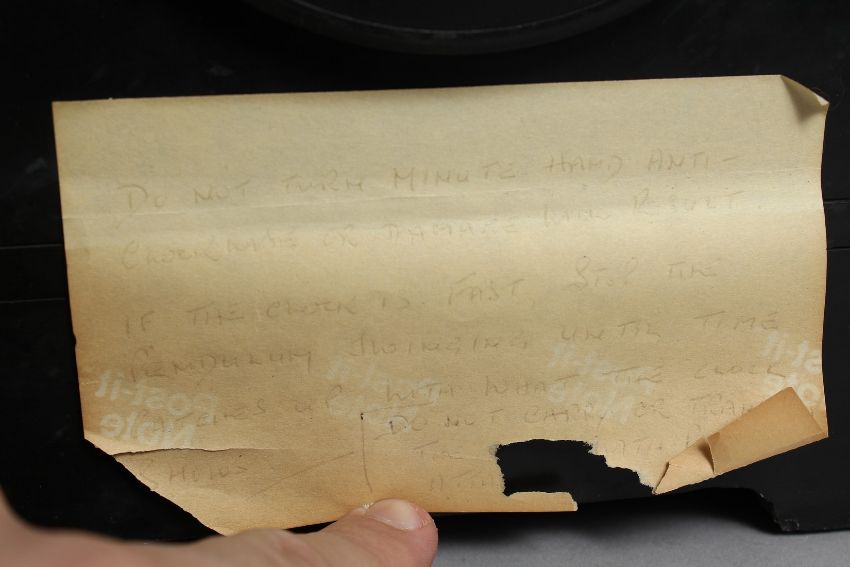 DO NOT TURN MINUTE HAND ANTI-
CLOCKWISE OR DAMAGE WILL RESULT.
IF THE CLOCK IS FAST, STOP THE
PENDULUM SWINGING UNTIL TIME
CATCHES UP WITH WHAT THE CLOCK
SHOWS
DO NOT CARRY OR
Post-it Post-it Post-it Post-it
Note Note Note Note